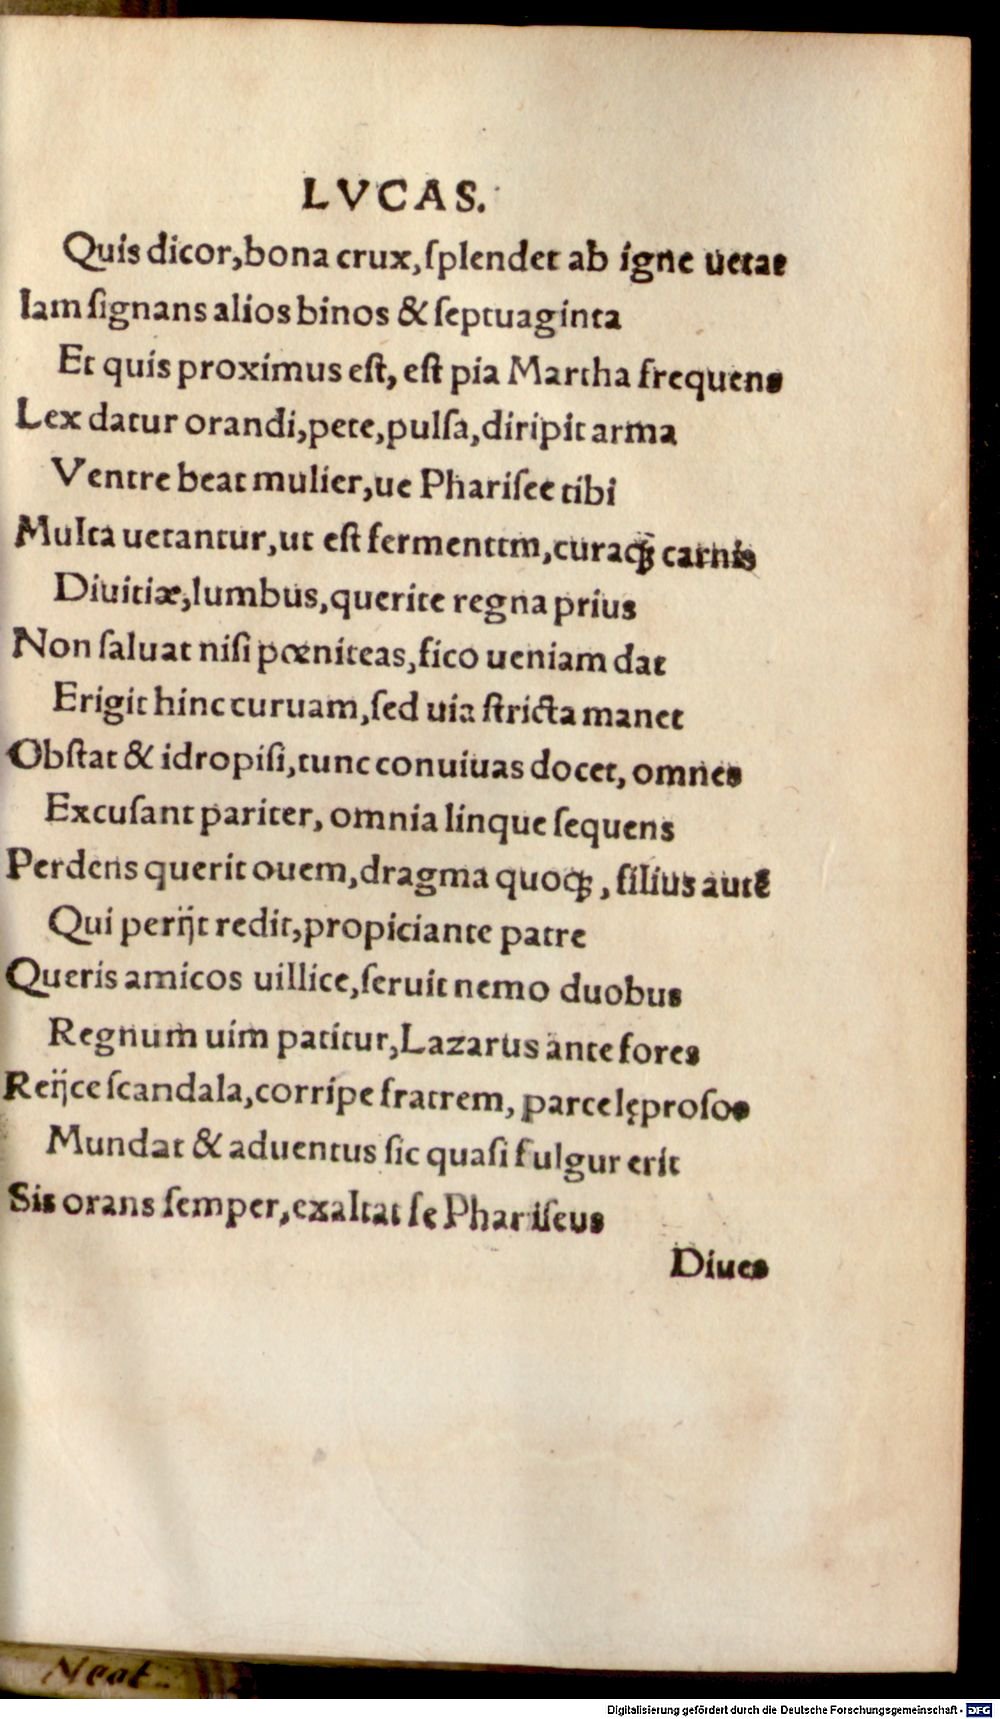 LVCAS.
Quis dicor,bona crux,ſplendet ab igne uetae
Iam ſignans alios binos & ſeptuaginta
Et quis proximus eſt, eſt pia Martha frequens
Lex datur orandi,pete,pulſa,diripit arma
Ventre beat mulier,ue Phariſee tibi
Multa uetantur,ut eſt fermenttm,curaqꝫ carnis
Diuitiæ,lumbus,querite regna prius
Non ſaluat niſi pœniteas,fico ueniam dat
Erigit hinc curuam,ſed uia ſtricta manet
Obſtat & idropiſi,tunc conuiuas docet, omnes
Excuſant pariter, omnia linque ſequens
Perdens querit ouem,dragma quoqꝫ, filius autē
Qui perijt redit,propiciante patre
Queris amicos uillice,ſeruit nemo duobus
Regnum uim patitur,Lazarus ante fores
Reijce ſcandala,corripe fratrem, parcelęproſos
Mundat & aduentus ſic quaſi fulgur erit
Sis orans ſemper,exaltat ſe Phariſeus
Diues
Neat
Digitalisierung gefördert durch die Deutsche Forschungsgemeinschaft - DFG